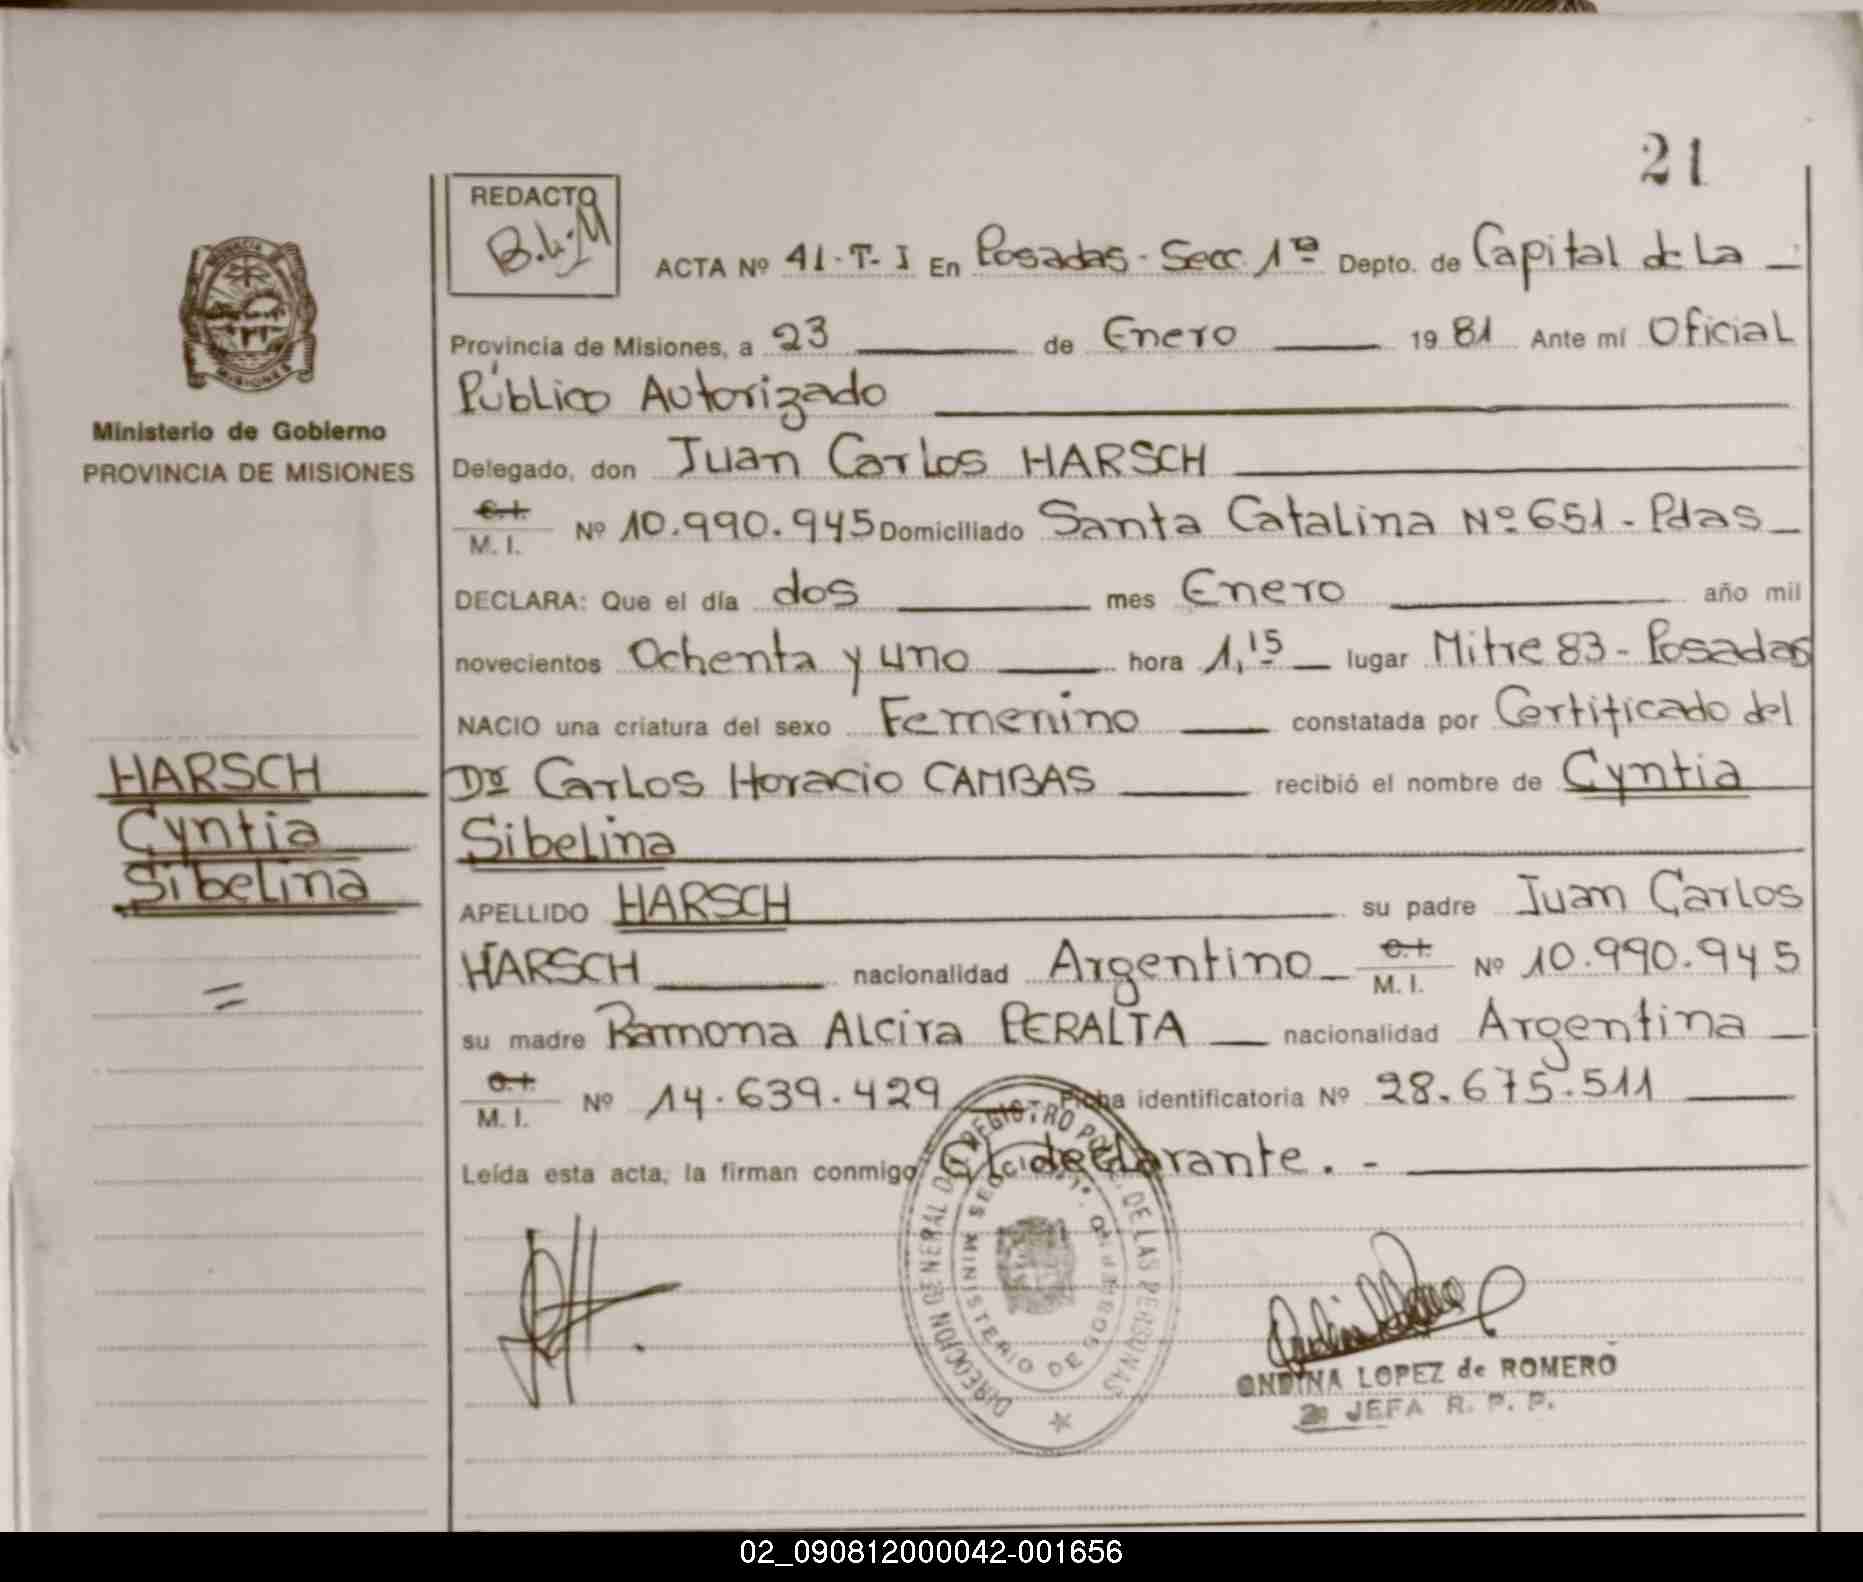 21
REDACTO
B.L.M
ACTA Nº 41-T-I En Posadas-Secc 1ª Depto. de Capital de La
Provincia de Misiones, a 23 de Enero 1981 Ante mí Oficial
Público Autorizado
Ministerio de Gobierno
PROVINCIA DE MISIONES
Delegado, don Juan Carlos HARSCH
C.I. M. I. Nº 10.990.945 Domiciliado Santa Catalina Nº 651 - Pdas
DECLARA: Que el día dos mes Enero año mil
novecientos Ochenta y uno hora 1,15 lugar Mitre 83 - Posadas
NACIO una criatura del sexo Femenino constatada por Certificado del
HARSCH
Cyntia
Sibelina
Dr Carlos Horacio CAMBAS recibió el nombre de Cyntia
Sibelina
APELLIDO HARSCH su padre Juan Carlos
HARSCH nacionalidad Argentino C.I. M. I. Nº 10.990.945
su madre Ramona Alcira PERALTA nacionalidad Argentina
C.I. M. I. Nº 14.639.429 Ficha identificatoria Nº 28.675.511
Leída esta acta, la firman conmigo El declarante. -
DIRECCION GENERAL DEL REGISTRO PCIAL. DE LAS PERSONAS
MINISTERIO DE GOBIERNO
ONDINA LOPEZ de ROMERO
2ª JEFA R. P. P.
02_090812000042-001656